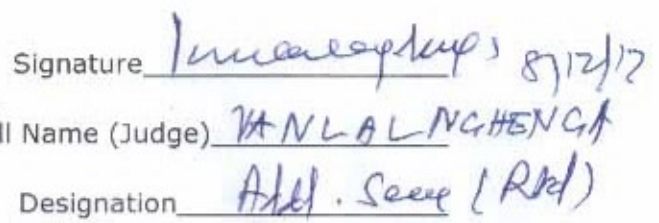 Signature 8/12/17
ll Name (Judge) VANLALNGHENGA
Designation Addl. Secy (Rtd)